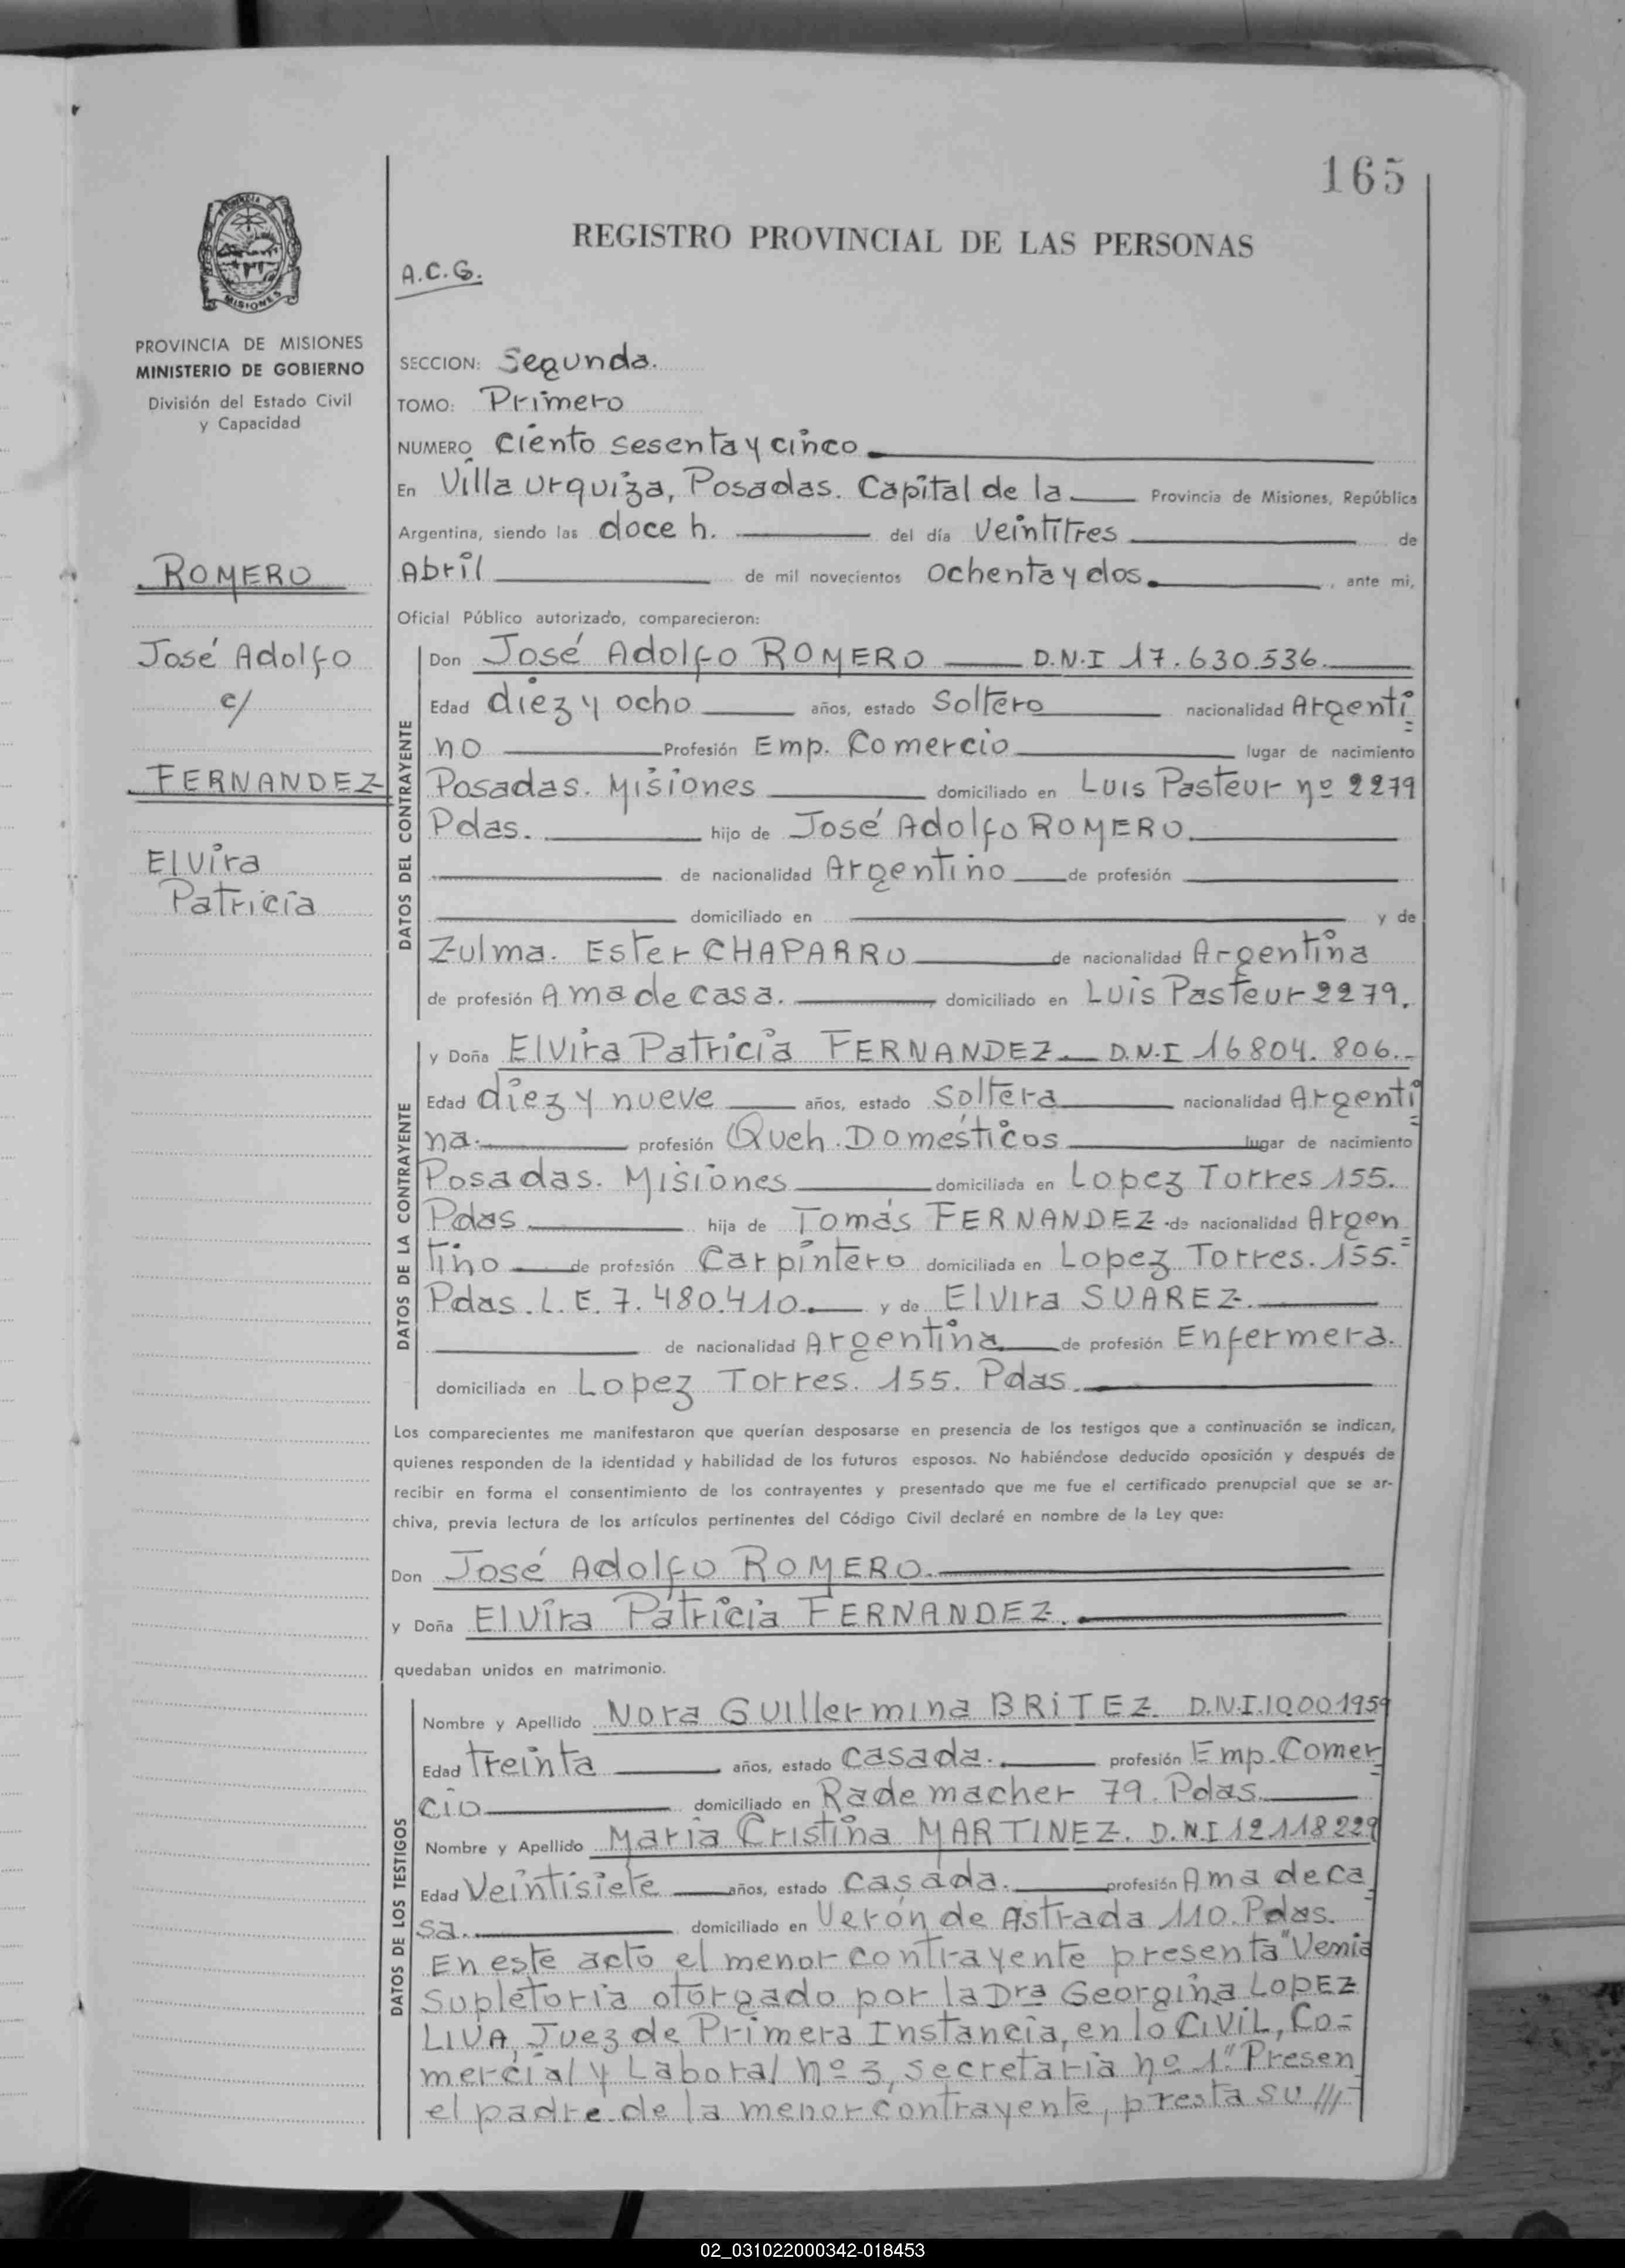 165
REGISTRO PROVINCIAL DE LAS PERSONAS
A.C.G.
PROVINCIA DE MISIONES
MINISTERIO DE GOBIERNO
División del Estado Civil
y Capacidad
ROMERO
José Adolfo
c/
FERNANDEZ
Elvira
Patricia
SECCION: Segunda.
TOMO: Primero
NUMERO Ciento sesenta y cinco
En Villa Urquiza, Posadas. Capital de la Provincia de Misiones, República
Argentina, siendo las doce h. del día Veintitres de
Abril de mil novecientos Ochenta y dos. , ante mi,
Oficial Público autorizado, comparecieron:
DATOS DEL CONTRAYENTE
Don José Adolfo ROMERO D.N.I 17.630.536.
Edad diez y ocho años, estado Soltero nacionalidad Argenti
no Profesión Emp. Comercio lugar de nacimiento
Posadas. Misiones domiciliado en Luis Pasteur nº 2279
Pdas. hijo de José Adolfo ROMERO.
de nacionalidad Argentino de profesión
domiciliado en y de
Zulma. Ester CHAPARRO de nacionalidad Argentina
de profesión Ama de casa. domiciliado en Luis Pasteur 2279.
DATOS DE LA CONTRAYENTE
y Doña Elvira Patricia FERNANDEZ D.N.I 16804.806.
Edad diez y nueve años, estado Soltera nacionalidad Argenti
na. profesión Queh. Domésticos lugar de nacimiento
Posadas. Misiones domiciliada en Lopez Torres 155.
Pdas hija de Tomás FERNANDEZ de nacionalidad Argen
tino de profesión Carpintero domiciliada en Lopez Torres. 155.
Pdas. L.E. 7.480.410. y de Elvira SUAREZ.
de nacionalidad Argentina de profesión Enfermera.
domiciliada en Lopez Torres. 155. Pdas.
Los comparecientes me manifestaron que querían desposarse en presencia de los testigos que a continuación se indican,
quienes responden de la identidad y habilidad de los futuros esposos. No habiéndose deducido oposición y después de
recibir en forma el consentimiento de los contrayentes y presentado que me fue el certificado prenupcial que se ar-
chiva, previa lectura de los artículos pertinentes del Código Civil declaré en nombre de la Ley que:
Don José Adolfo ROMERO.
y Doña Elvira Patricia FERNANDEZ.
quedaban unidos en matrimonio.
DATOS DE LOS TESTIGOS
Nombre y Apellido Nora Guillermina BRITEZ. D.N.I. 10001959
Edad treinta años, estado Casada. profesión Emp. Comer
cio domiciliado en Rademacher 79. Pdas.
Nombre y Apellido Maria Cristina MARTINEZ. D.N.I 12118229
Edad Veintisiete años, estado Casada. profesión Ama de ca
sa. domiciliado en Verón de Astrada 110. Pdas.
En este acto el menor contrayente presenta "Venia
Supletoria otorgado por la Dra Georgina LOPEZ
LIVA, Juez de Primera Instancia, en lo Civil, Co=
mercial y Laboral nº 3, secretaria nº 1" Presen
el padre de la menor contrayente, presta su ///
02_031022000342-018453